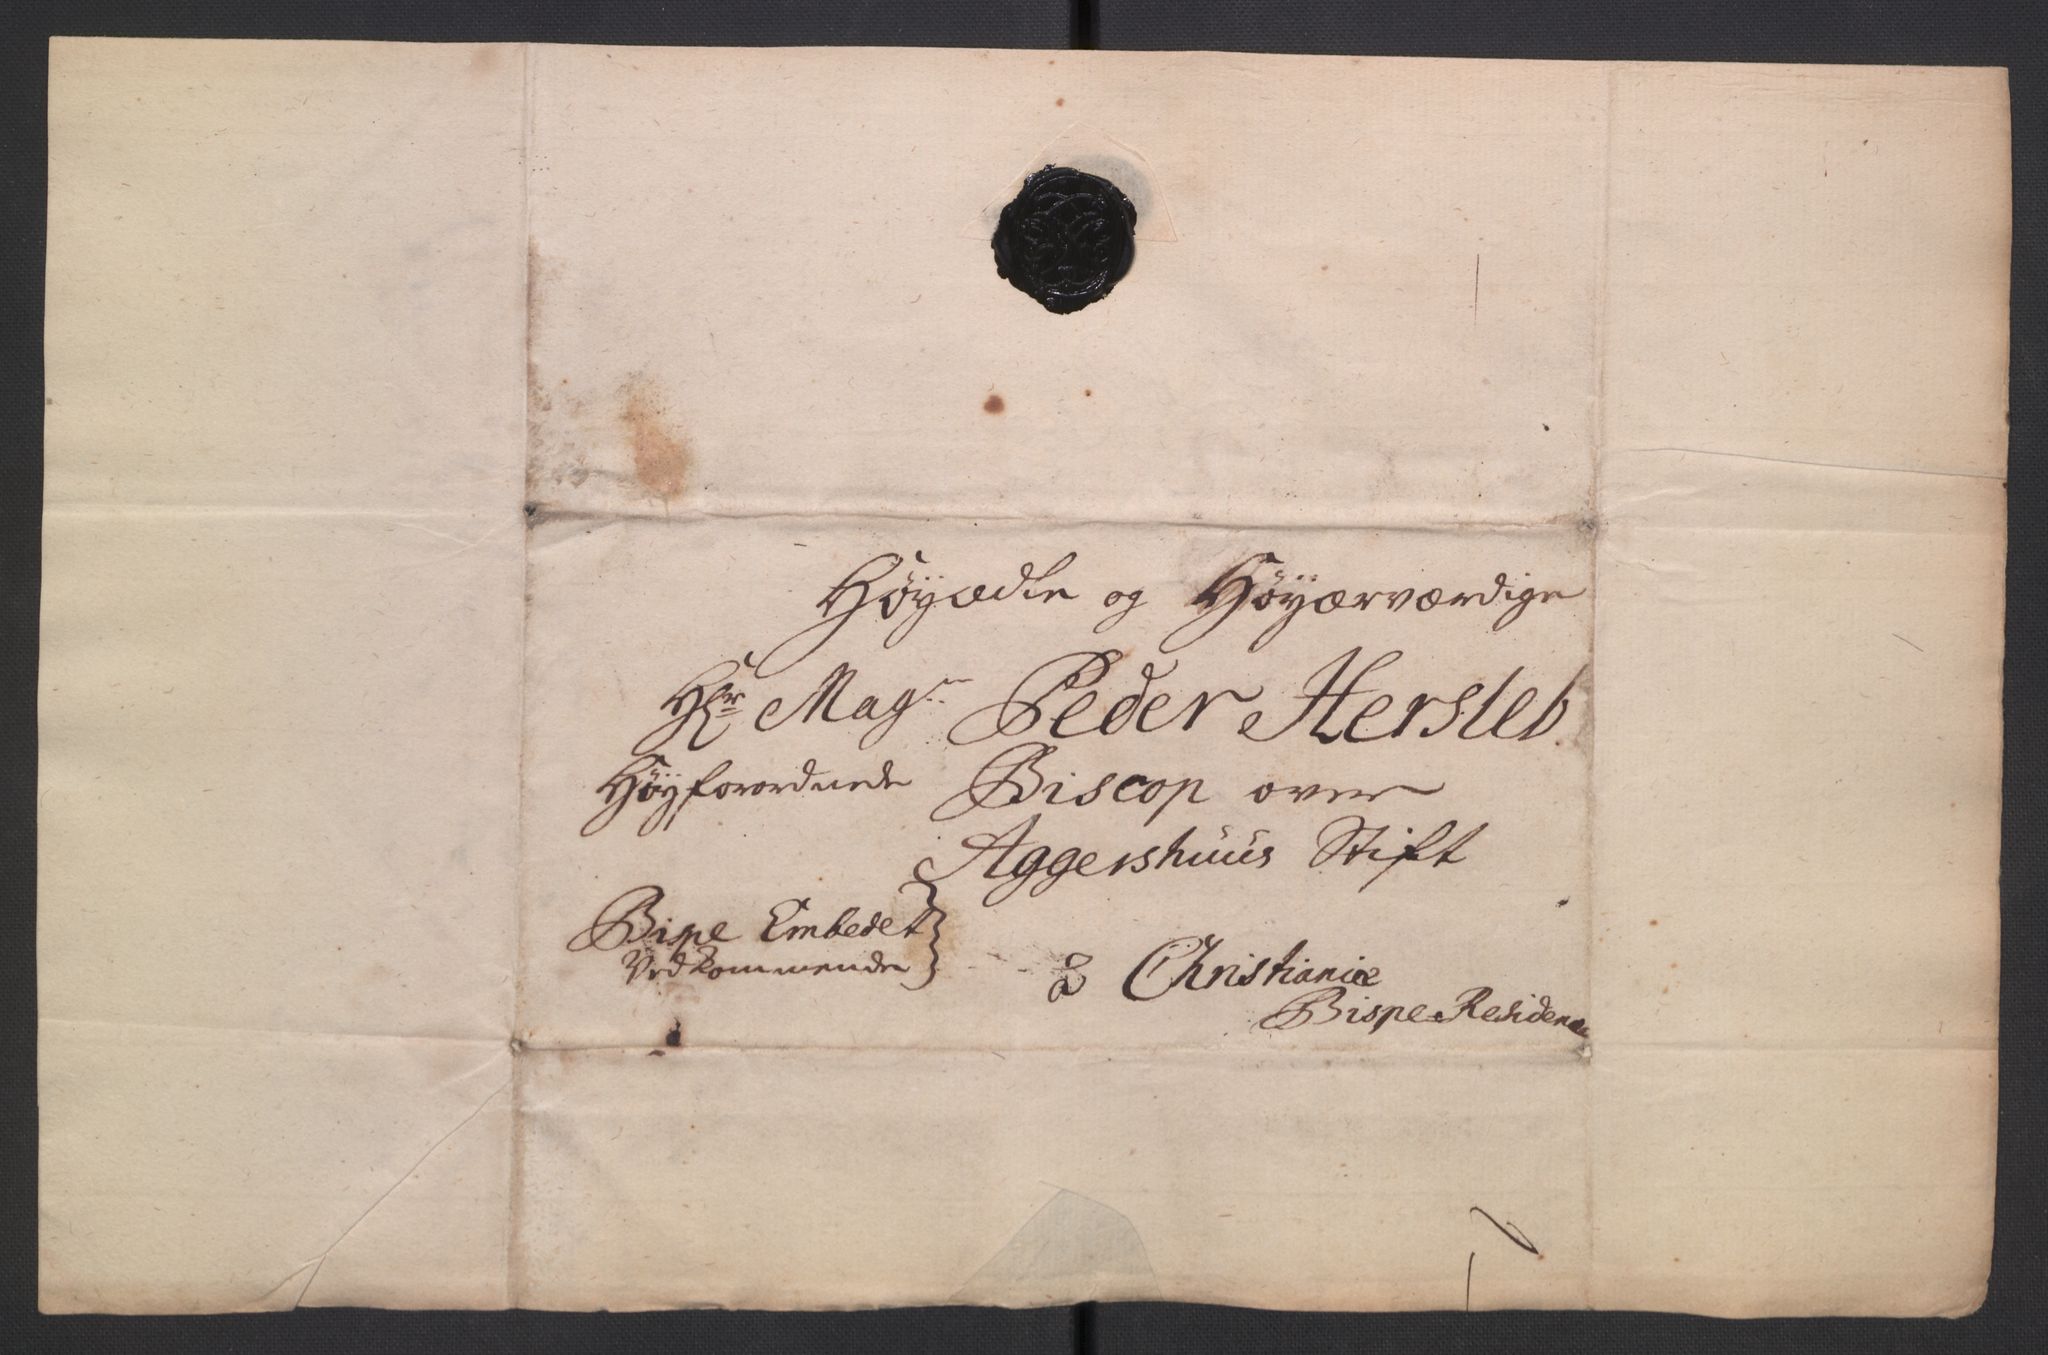 Høyædle og Høyærværdige
Hr Mag:r Peder Hersleb
Høyforordnede Biscop over
Aggershuus Stift
Bispe Embedet
Vedkommende
à Christianiæ
Bispe-Residence